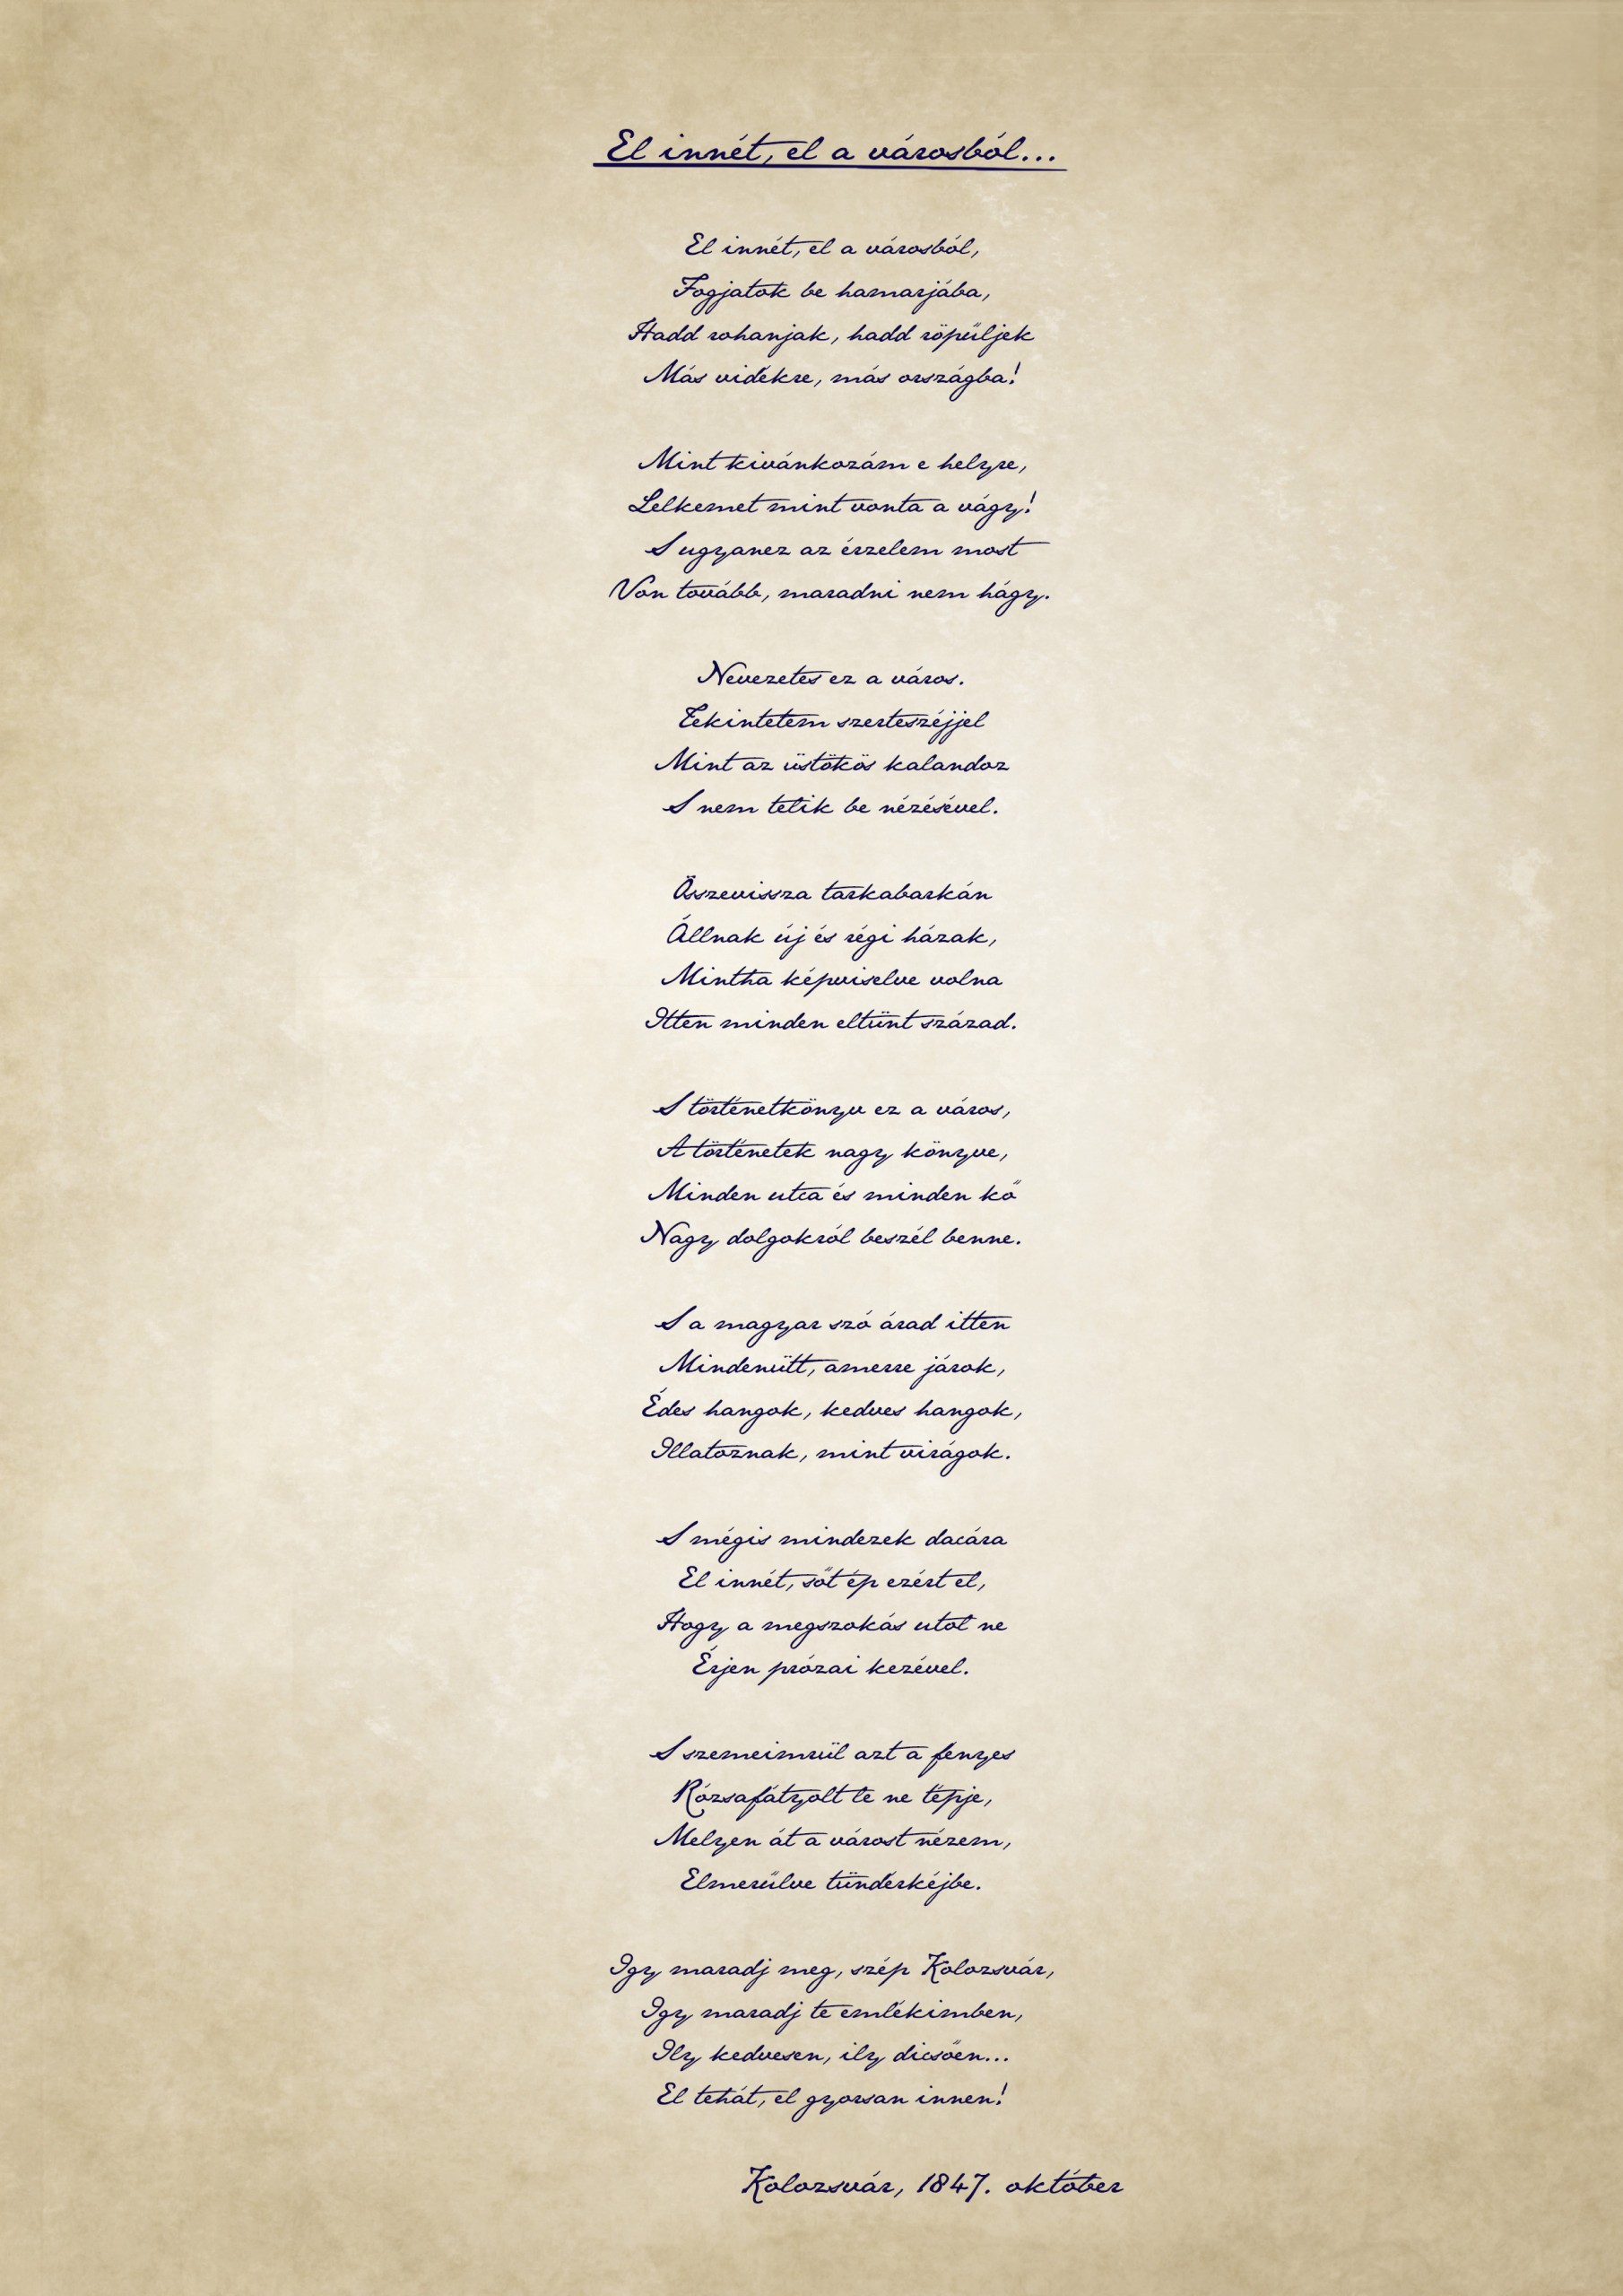 El innét, el a városból...
El innét, el a városból,
Fogjatok be hamarjába,
Hadd rohanjak, hadd röpűljek
Más vidékre, más országba!
Mint kivánkozám e helyre,
Lelkemet mint vonta a vágy!
S ugyanez az érzelem most
Von tovább, maradni nem hágy.
Nevezetes ez a város.
Tekintetem szerteszéjjel
Mint az üstökös kalandoz
S nem telik be nézésével.
Összevissza tarkabarkán
Állnak új és régi házak,
Mintha képviselve volna
Itten minden eltünt század.
S történetkönyv ez a város,
A történetek nagy könyve,
Minden utca és minden kő
Nagy dolgokról beszél benne.
S a magyar szó árad itten
Mindenütt, amerre járok,
Édes hangok, kedves hangok,
Illatoznak, mint virágok.
S mégis mindezek dacára
El innét, sőt ép ezért el,
Hogy a megszokás utol ne
Érjen prózai kezével.
S szemeimrül azt a fenyes
Rózsafátyolt le ne tépje,
Melyen át a várost nézem,
Elmerűlve tündérkéjbe.
Igy maradj meg, szép Kolozsvár,
Igy maradj te emlékimben,
Ily kedvesen, ily dicsően...
El tehát, el gyorsan innen!
Kolozsvár, 1847. október